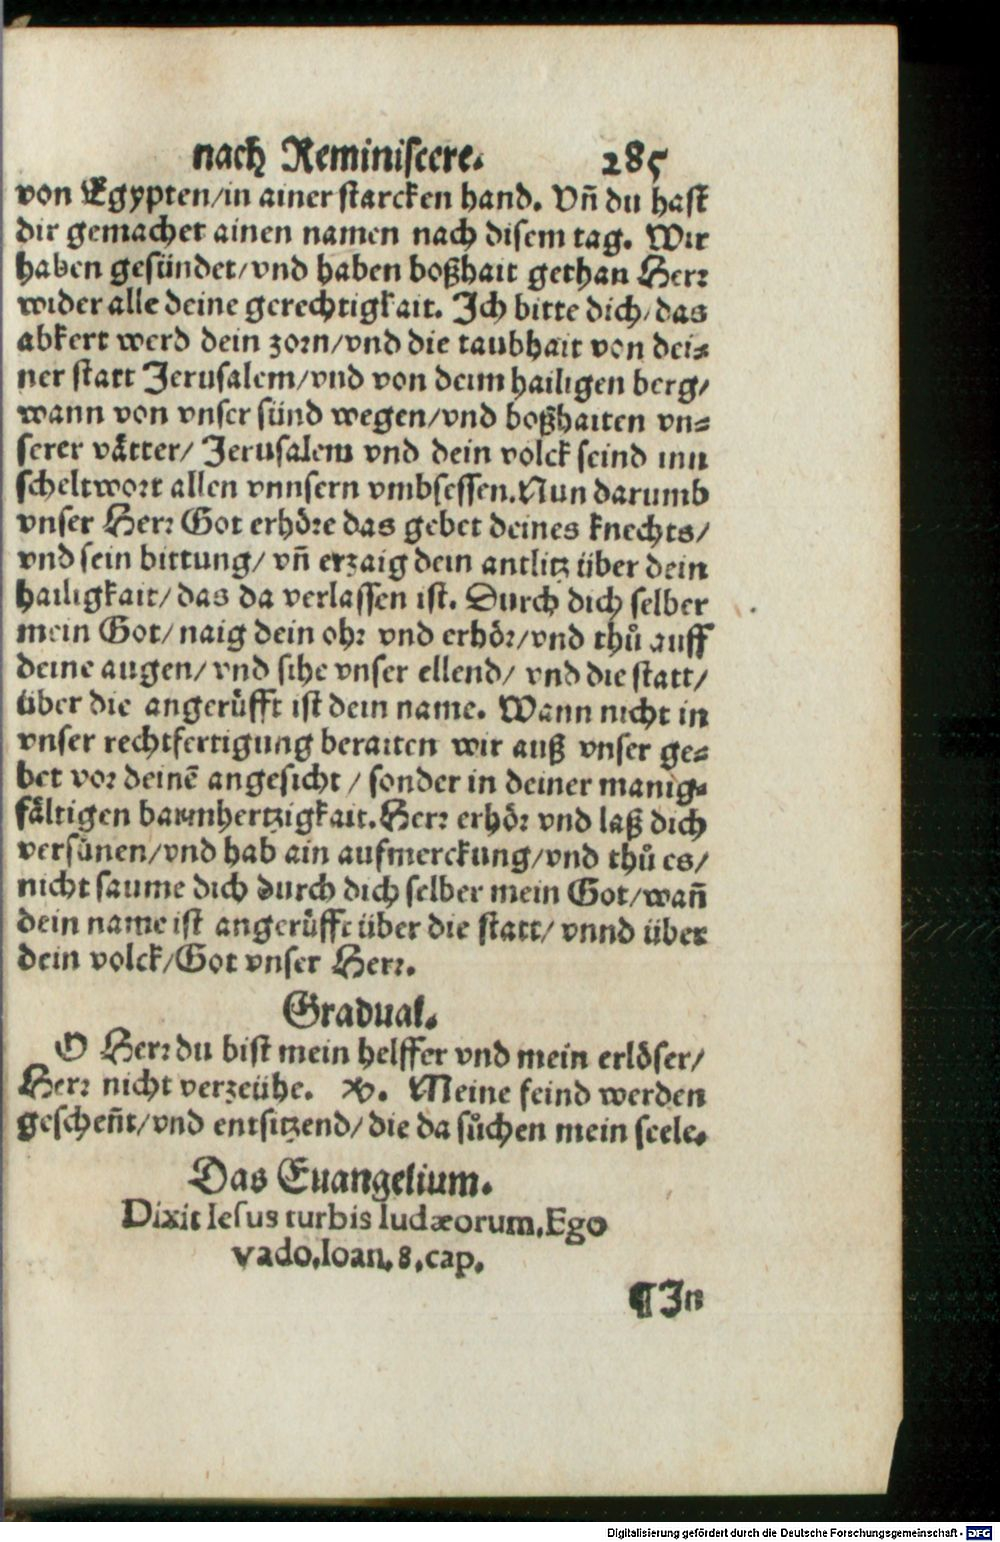 nach Reminiscere. 285
von Egypten/in ainer starcken hand. Vñ du hast
dir gemachet ainen namen nach disem tag. Wir
haben gesündet/vnd haben boßhait gethan Herr
wider alle deine gerechtigkait. Ich bitte dich/das
abkert werd dein zorn/vnd die taubhait von dei⸗
ner statt Jerusalem/vnd von deim hailigen berg/
wann von vnser sünd wegen/vnd boßhaiten vn⸗
serer vätter/ Jerusalem vnd dein volck seind inn
scheltwort allen vnnsern vmbsessen. Nun darumb
vnser Herr Got erhöre das gebet deines knechts/
vnd sein bittung/ vñ erzaig dein antlitz über dein
hailigkait/das da verlassen ist. Durch dich selber
mein Got/naig dein ohr vnd erhör/vnd thů auff
deine augen/vnd sihe vnser ellend/ vnd die statt/
über die angerůfft ist dein name. Wann nicht in
vnser rechtfertigung beraiten wir auß vnser ge⸗
bet vor deinē angesicht / sonder in deiner manig⸗
fältigen barmhertzigkait. Herr erhör vnd laß dich
versůnen/vnd hab ain aufmerckung/vnd thů es/
nicht saume dich durch dich selber mein Got/wañ
dein name ist angerůfft über die statt/ vnnd über
dein volck/Got vnser Herr.
Gradual.
O Herr du bist mein helffer vnd mein erlöser/
Herr nicht verzeühe. ℣. Meine feind werden
gescheñt/vnd entsitzend/die da sůchen mein seele.
Das Euangelium.
Dixit Iesus turbis Iudæorum. Ego
vado. Ioan. 8. cap.
¶ In
Digitalisierung gefördert durch die Deutsche Forschungsgemeinschaft - DFG